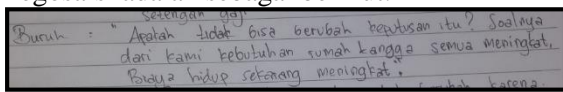 setengah gaji
Buruh : " Apakah tidak bisa berubah keputusan itu? Soalnya
dari kami kebutuhan rumah tangga semua meningkat,
Biaya hidup sekarang meningkat".
karena